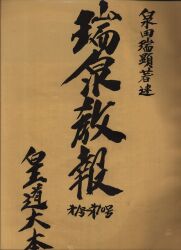 泉田瑞顕著述
瑞泉教報
皇道大本